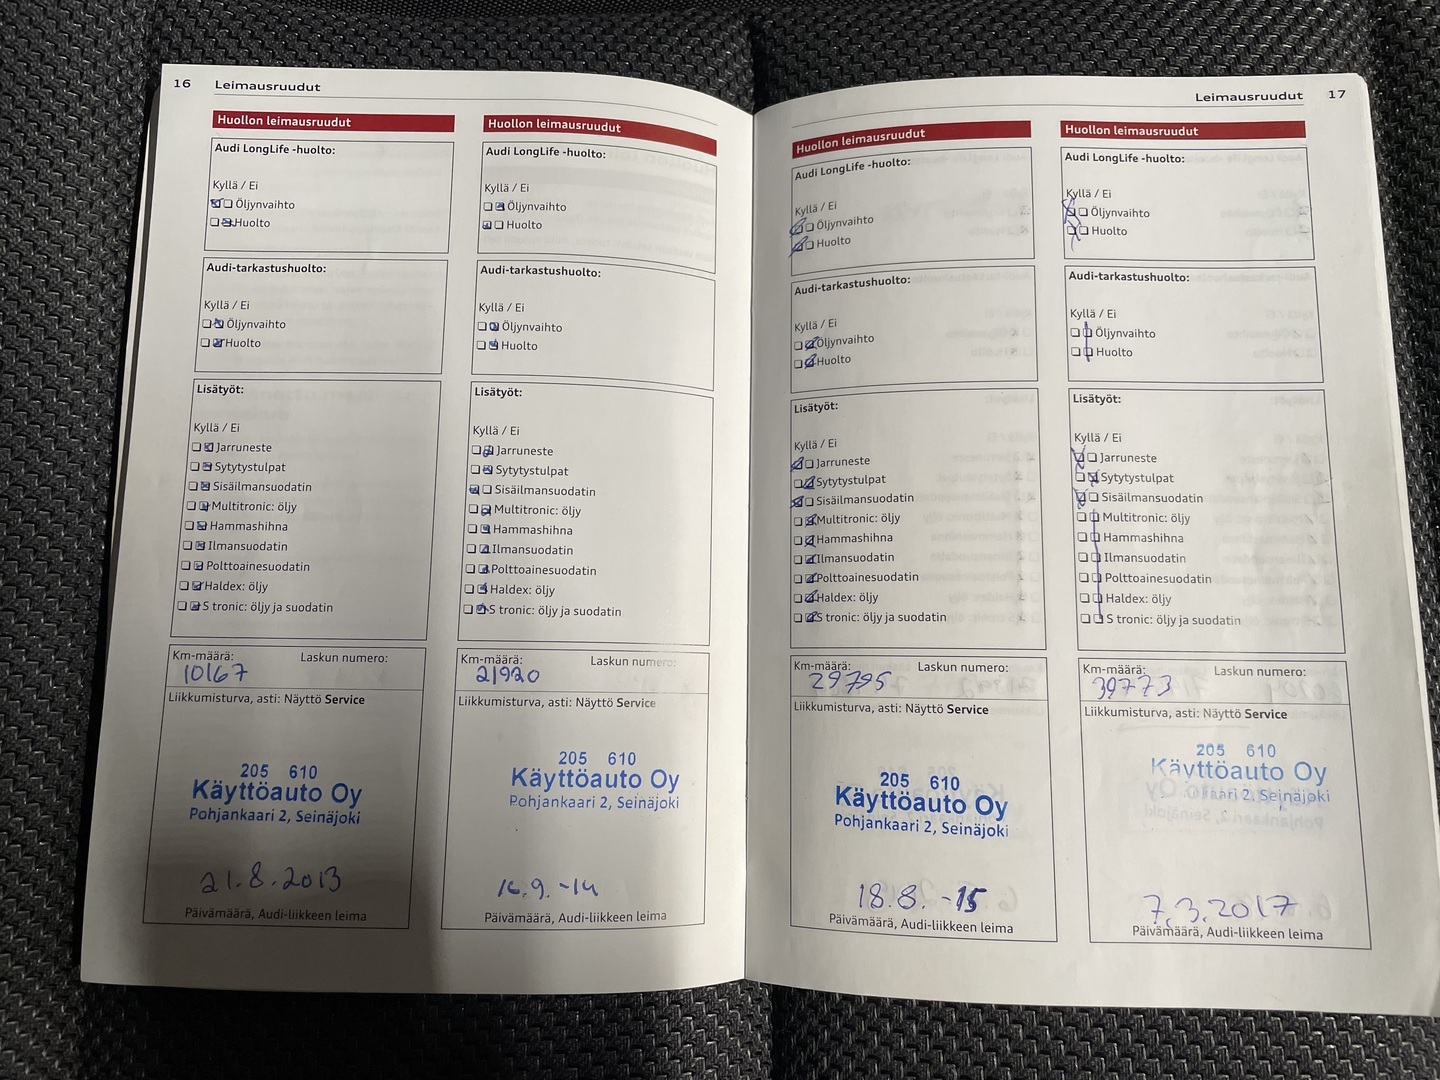 16 Leimausruudut
Huollon leimausruudut
Audi LongLife -huolto:
Kyllä / Ei
Öljynvaihto
Huolto
Audi-tarkastushuolto:
Kyllä / Ei
Öljynvaihto
Huolto
Lisätyöt:
Kyllä / Ei
Jarruneste
Sytytystulpat
Sisäilmansuodatin
Multitronic: öljy
Hammashihna
Ilmansuodatin
Polttoainesuodatin
Haldex: öljy
S tronic: öljy ja suodatin
Km-määrä: Laskun numero:
10167
Liikkumisturva, asti: Näyttö Service
205 610
Käyttöauto Oy
Pohjankaari 2, Seinäjoki
21.8.2013
Päivämäärä, Audi-liikkeen leima
Huollon leimausruudut
Audi LongLife -huolto:
Kyllä / Ei
Öljynvaihto
Huolto
Audi-tarkastushuolto:
Kyllä / Ei
Öljynvaihto
Huolto
Lisätyöt:
Kyllä / Ei
Jarruneste
Sytytystulpat
Sisäilmansuodatin
Multitronic: öljy
Hammashihna
Ilmansuodatin
Polttoainesuodatin
Haldex: öljy
S tronic: öljy ja suodatin
Km-määrä: Laskun numero:
21920
Liikkumisturva, asti: Näyttö Service
205 610
Käyttöauto Oy
Pohjankaari 2, Seinäjoki
16.9.-14
Päivämäärä, Audi-liikkeen leima
Leimausruudut 17
Huollon leimausruudut
Audi LongLife -huolto:
Kyllä / Ei
Öljynvaihto
Huolto
Audi-tarkastushuolto:
Kyllä / Ei
Öljynvaihto
Huolto
Lisätyöt:
Kyllä / Ei
Jarruneste
Sytytystulpat
Sisäilmansuodatin
Multitronic: öljy
Hammashihna
Ilmansuodatin
Polttoainesuodatin
Haldex: öljy
S tronic: öljy ja suodatin
Km-määrä: Laskun numero:
29795
Liikkumisturva, asti: Näyttö Service
205 610
Käyttöauto Oy
Pohjankaari 2, Seinäjoki
18.8.-15
Päivämäärä, Audi-liikkeen leima
Huollon leimausruudut
Audi LongLife -huolto:
Kyllä / Ei
Öljynvaihto
Huolto
Audi-tarkastushuolto:
Kyllä / Ei
Öljynvaihto
Huolto
Lisätyöt:
Kyllä / Ei
Jarruneste
Sytytystulpat
Sisäilmansuodatin
Multitronic: öljy
Hammashihna
Ilmansuodatin
Polttoainesuodatin
Haldex: öljy
S tronic: öljy ja suodatin
Km-määrä: Laskun numero:
39773
Liikkumisturva, asti: Näyttö Service
205 610
Käyttöauto Oy
2, Seinäjoki
7.3.2017
Päivämäärä, Audi-liikkeen leima